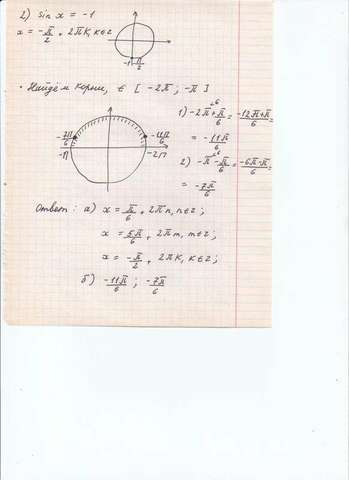 2) sin x = -1
x = -π/2 + 2πk, k∈z
-1
-π/2
• Найдём корни, ∈ [-2π; -π]
-7π/6
-π
-11π/6
-2π
1) -2π + π/6 = (-12π+π)/6 =
= -11π/6
2) -π - π/6 = (-6π-π)/6 =
= -7π/6
Ответ: а) x = π/6 + 2πn, n∈z;
x = 5π/6 + 2πm, m∈z;
x = -π/2 + 2πk, k∈z;
б) -11π/6 ; -7π/6